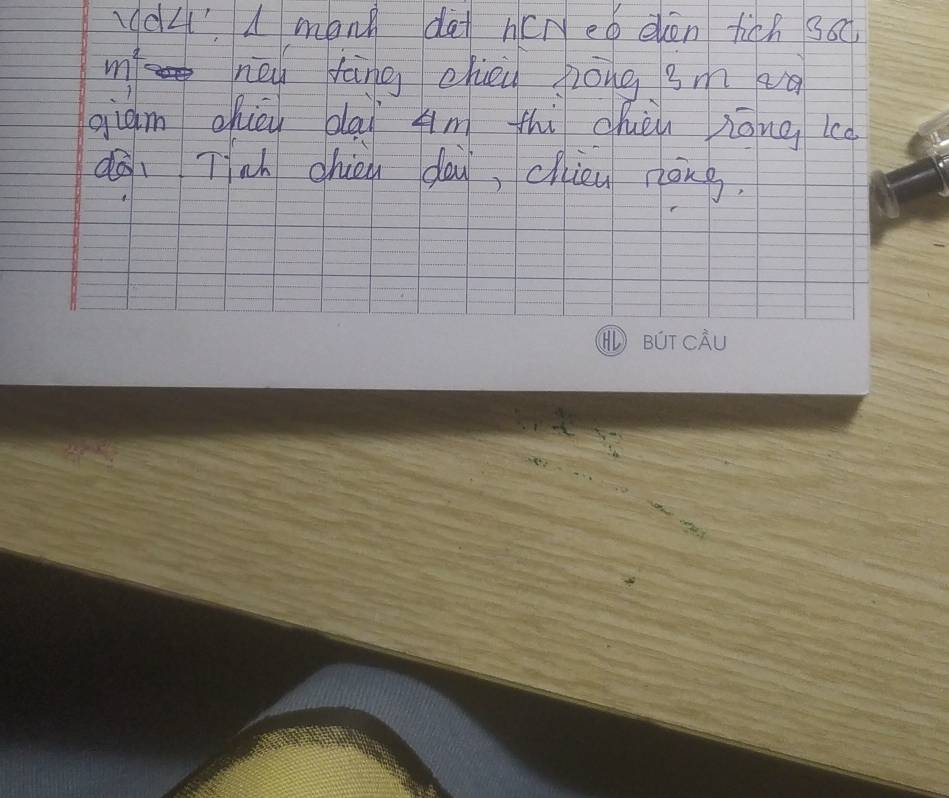 Vd4: 1 mảnh đất hCN có diện tích 360
m² nếu tăng chiều rộng 3m và
giảm chiều dài 4m thì chiều rộng ko
đổi. Tính chiều dài, chiều rộng.
HL BÚT CẦU